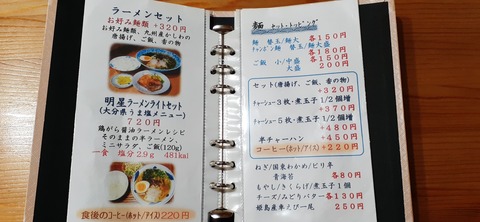 ラーメンセット
お好み麺類 +320円
お好み麺類、九州産かしわの
唐揚げ、ご飯、香の物
明星ラーメンライトセット
(大分県うま塩メニュー)
720円
鶏がら醤油ラーメンレシピ
そのままの半ラーメン
ミニサラダ、ご飯(120g)
一食 塩分2.9g 481kcal
食後のコーヒー(ホット/アイス)220円
麺 セット・トッピング
麺 替玉/麺大 各150円
チャンポン麺 替玉/麺大盛
各180円
ご飯 小/中盛 各150円
大盛 200円
セット(唐揚げ、ご飯、香の物)
+320円
チャーシュー3枚・煮玉子1/2個増
+370円
チャーシュー5枚・煮玉子1/2個増
+480円
半チャーハン +450円
コーヒー(ホット/アイス) +220円
ねぎ/国東わかめ/ピリ辛
青海苔 各80円
もやし/きくらげ/煮玉子1個
チーズ/みどりバター 各130円
姫島産車えび一尾 250円